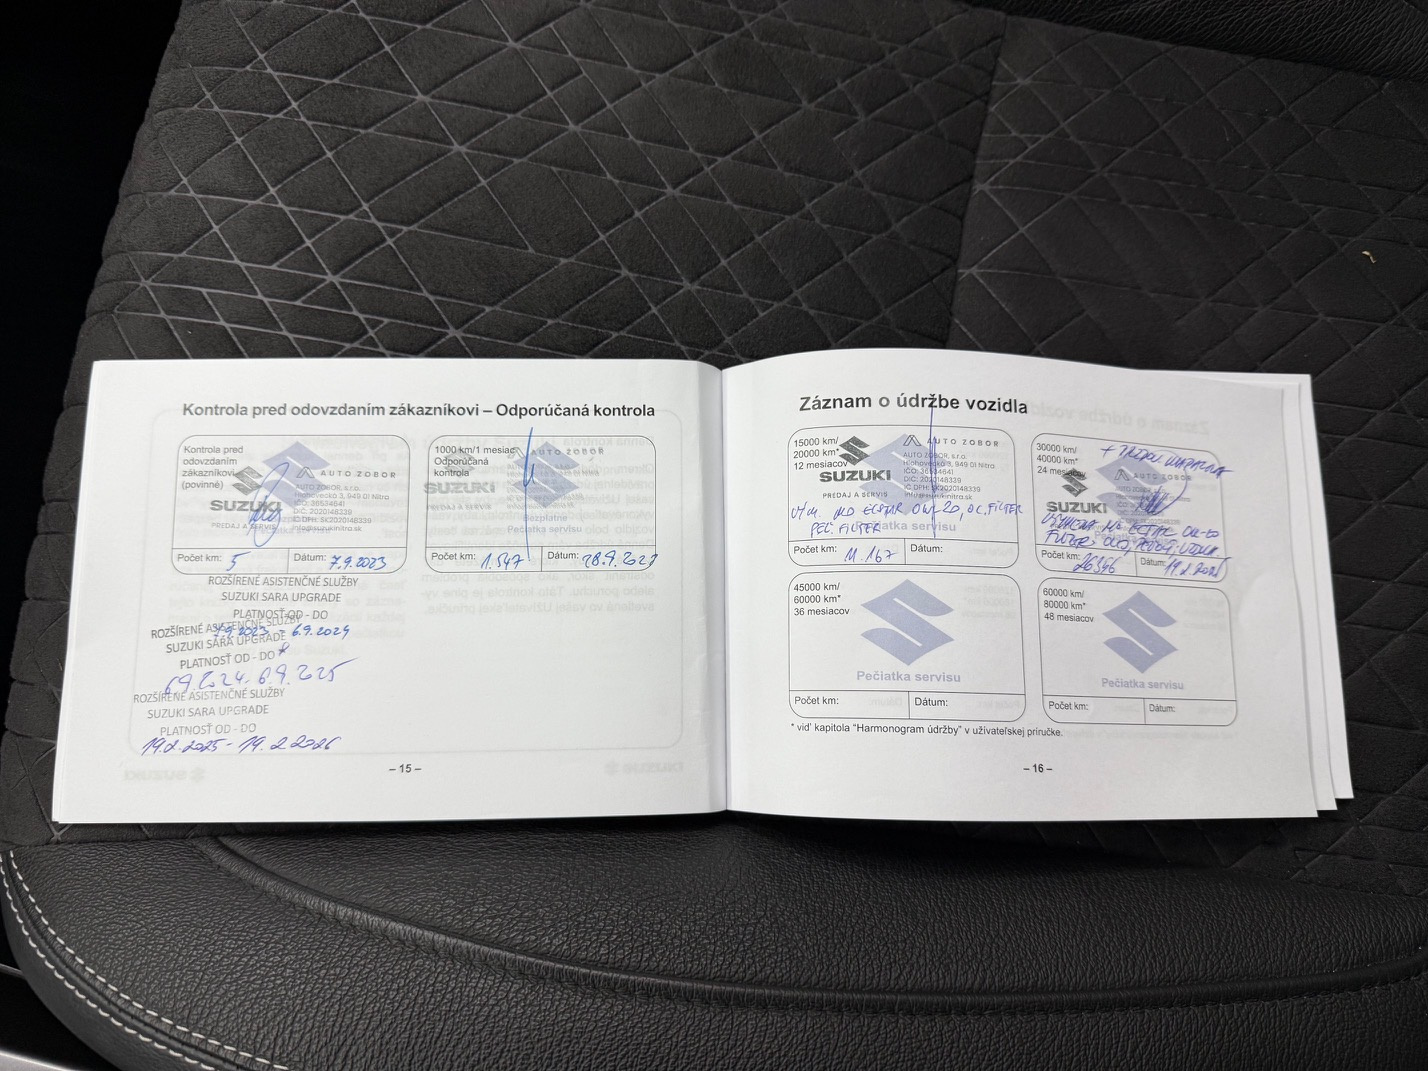 Kontrola pred odovzdaním zákazníkovi – Odporúčaná kontrola
Kontrola pred
odovzdaním
zákazníkovi
(povinné)
AUTO ZOBOR
AUTO ZOBOR, s.r.o.
Hlohovecká 3, 949 01 Nitra
IČO: 36534641
DIČ: 2020148339
IČ DPH: SK2020148339
info@suzukinitra.sk
SUZUKI
PREDAJ A SERVIS
Počet km: 5 Dátum: 7.9.2023
1000 km/1 mesiac
Odporúčaná
kontrola
AUTO ZOBOR
SUZUKI
Bezplatne
Pečiatka servisu
Počet km: 1.547 Dátum:
ROZŠÍRENÉ ASISTENČNÉ SLUŽBY
SUZUKI SARA UPGRADE
PLATNOSŤ OD - DO
7.9.2023 - 6.9.2024
ROZŠÍRENÉ ASISTENČNÉ SLUŽBY
SUZUKI SARA UPGRADE
PLATNOSŤ OD - DO
6.9.2024 - 6.9.2025
ROZŠÍRENÉ ASISTENČNÉ SLUŽBY
SUZUKI SARA UPGRADE
PLATNOSŤ OD - DO
19.2.2025 - 19.2.2026
– 15 –
Záznam o údržbe vozidla
15000 km/
20000 km*
12 mesiacov
AUTO ZOBOR
AUTO ZOBOR, s.r.o.
Hlohovecká 3, 949 01 Nitra
IČO: 36534641
DIČ: 2020148339
IČ DPH: SK2020148339
info@suzukinitra.sk
SUZUKI
PREDAJ A SERVIS
MO ECSTAR 0W-20, OL. FILTER
PEĽ. FILTER
Pečiatka servisu
Počet km: 11.167 Dátum:
30000 km/
40000 km*
24 mesiacov
AUTO ZOBOR
SUZUKI
VÝMENA
FILTER
Počet km: 26346 Dátum:
45000 km/
60000 km*
36 mesiacov
Pečiatka servisu
Počet km: Dátum:
60000 km/
80000 km*
48 mesiacov
Pečiatka servisu
Počet km: Dátum:
* viď' kapitola "Harmonogram údržby" v užívateľskej príručke.
– 16 –